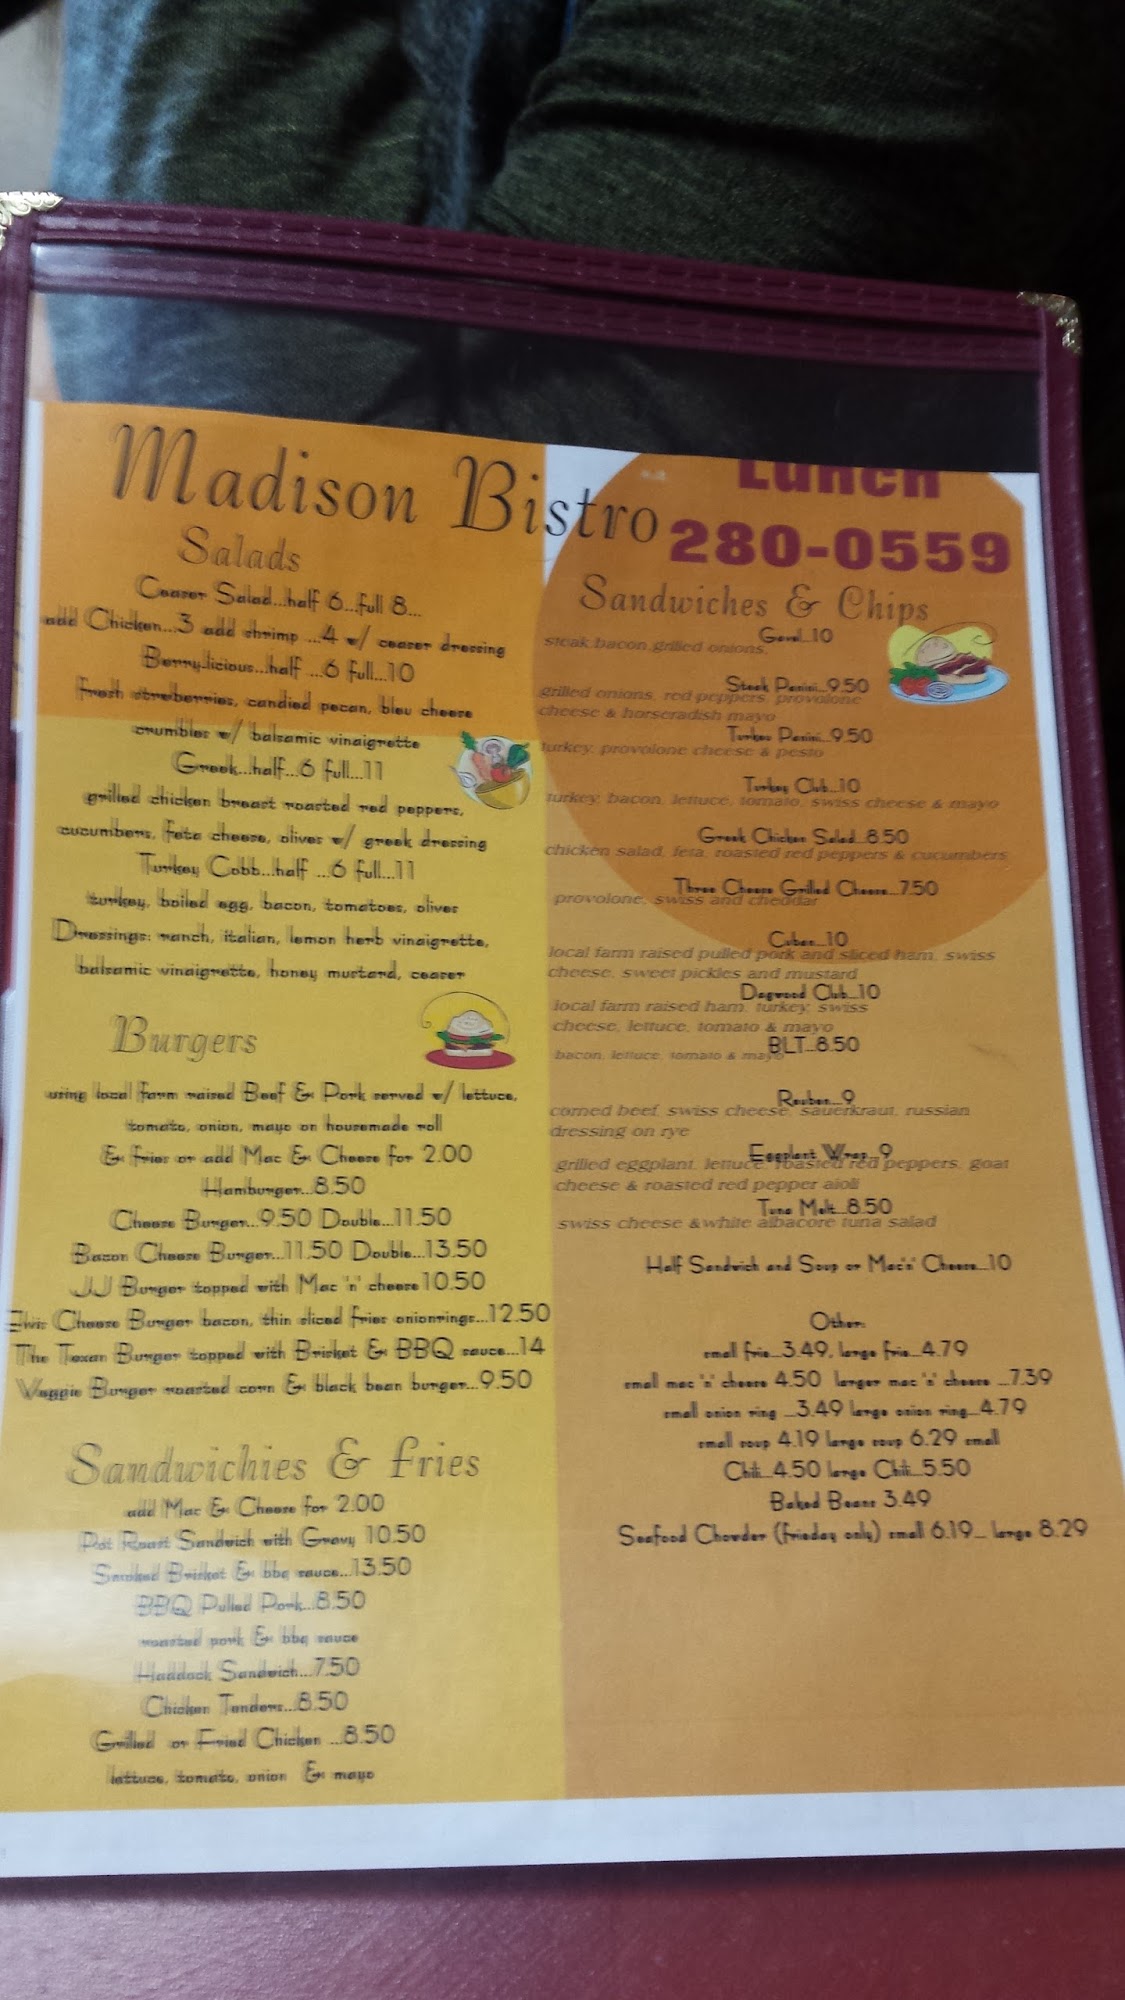 Madison Bistro
Lunch
280-0559
Salads
Ceaser Salad...half 6...full 8...
add Chicken...3 add shrimp ...4 w/ ceaser dressing
Berry-licious...half ...6 full...10
fresh streberries, candied pecan, bleu cheese
crumbles w/ balsamic vinaigrette
Greek...half...6 full...11
grilled chicken breast roasted red peppers,
cucumbers, feta cheese, olives w/ greek dressing
Turkey Cobb...half ...6 full...11
turkey, boiled egg, bacon, tomatoes, olives
Dressings: ranch, italian, lemon herb vinaigrette,
balsamic vinaigrette, honey mustard, ceaser
Burgers
using local farm raised Beef & Pork served w/ lettuce,
tomato, onion, mayo on housemade roll
& fries or add Mac & Cheese for 2.00
Hamburger...8.50
Cheese Burger...9.50 Double...11.50
Bacon Cheese Burger...11.50 Double...13.50
JJ Burger topped with Mac 'n' cheese 10.50
Elvis Cheese Burger bacon, thin sliced fries onionrings...12.50
The Texan Burger topped with Brisket & BBQ sauce...14
Veggie Burger roasted corn & black bean burger...9.50
Sandwichies & fries
add Mac & Cheese for 2.00
Pot Roast Sandwich with Gravy 10.50
Smoked Brisket & bbq sauce...13.50
BBQ Pulled Pork...8.50
roasted pork & bbq sauce
Haddock Sandwich...7.50
Chicken Tenders...8.50
Grilled or Fried Chicken ...8.50
lettuce, tomato, onion & mayo
Sandwiches & Chips
Gavel...10
steak,bacon,grilled onions,
Steak Panini...9.50
grilled onions, red peppers, provolone
cheese & horseradish mayo
Turkey Panini...9.50
turkey, provolone cheese & pesto
Turkey Club...10
turkey, bacon, lettuce, tomato, swiss cheese & mayo
Greek Chicken Salad...8.50
chicken salad, feta, roasted red peppers & cucumbers
Three Cheese Grilled Cheese...7.50
provolone, swiss and cheddar
Cuban...10
local farm raised pulled pork and sliced ham, swiss
cheese, sweet pickles and mustard
Dagwood Club...10
local farm raised ham, turkey, swiss
cheese, lettuce, tomato & mayo
BLT...8.50
bacon, lettuce, tomato & mayo
Reuben...9
corned beef, swiss cheese, sauerkraut, russian
dressing on rye
Eggplant Wrap...9
grilled eggplant, lettuce, roasted red peppers, goat
cheese & roasted red pepper aioli
Tuna Melt...8.50
swiss cheese &white albacore tuna salad
Half Sandwich and Soup or Mac'n' Cheese...10
Other:
small frie...3.49, large frie...4.79
small mac 'n' cheese 4.50 larger mac 'n' cheese ...7.39
small onion ring ...3.49 large onion ring...4.79
small soup 4.19 large soup 6.29 small
Chili...4.50 large Chili...5.50
Baked Beans 3.49
Seafood Chowder (frieday only) small 6.19... large 8.29